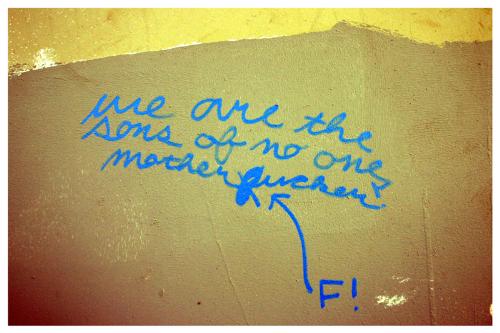 we are the
sons of no one,
motherfucker.
F!